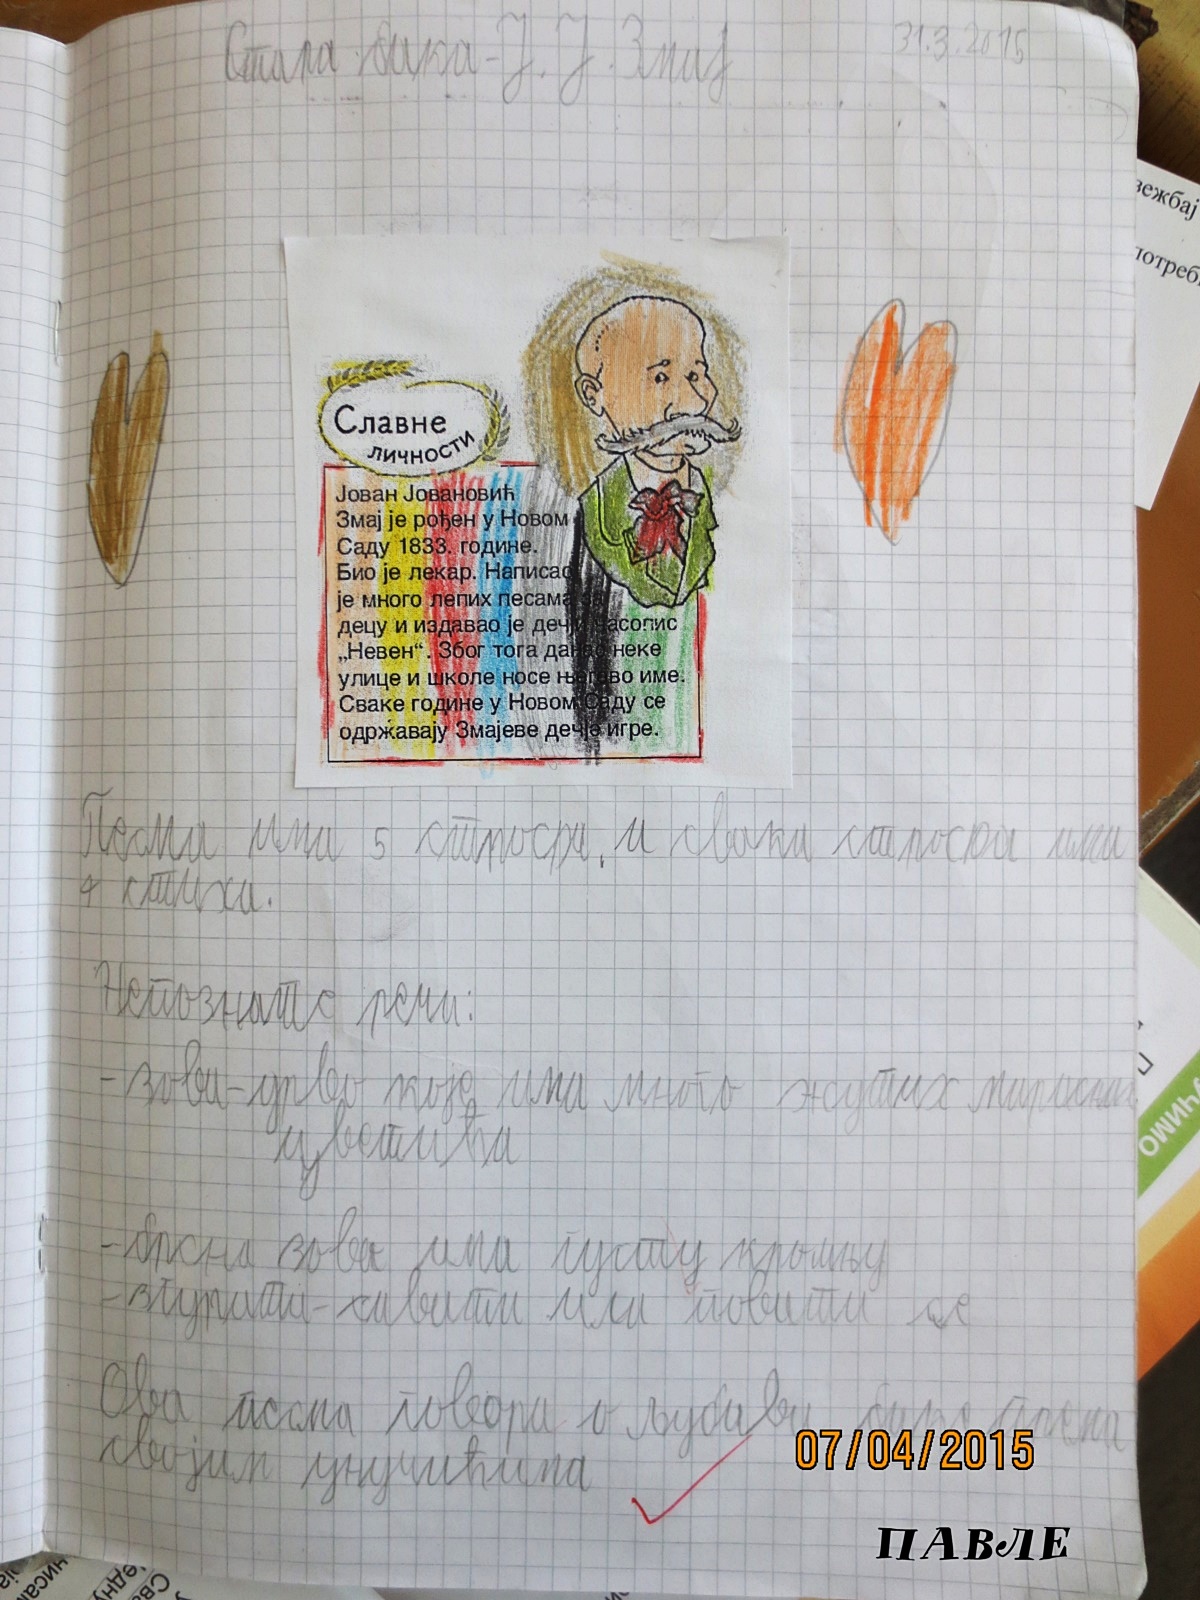 Стара бака - Ј. Ј. Змај
31.3.2015
Славне
личности
Јован Јовановић
Змај је рођен у Новом
Саду 1833. године.
Био је лекар. Написао
је много лепих песама за
децу и издавао је дечји часопис
„Невен“. Због тога данас неке
улице и школе носе његово име.
Сваке године у Новом Саду се
одржавају Змајеве дечје игре.
Песма има 5 строфа, и свака строфа има
4 стиха.
Непознате речи:
- зова - дрво које има много жутих мирисних
цветића
- бусна зова има густу крошњу
- - савити или повити се
Ова песма говори о љубави баке према
својим унучићима
07/04/2015
ПАВЛЕ
зежбај
потреб
УЧИМО